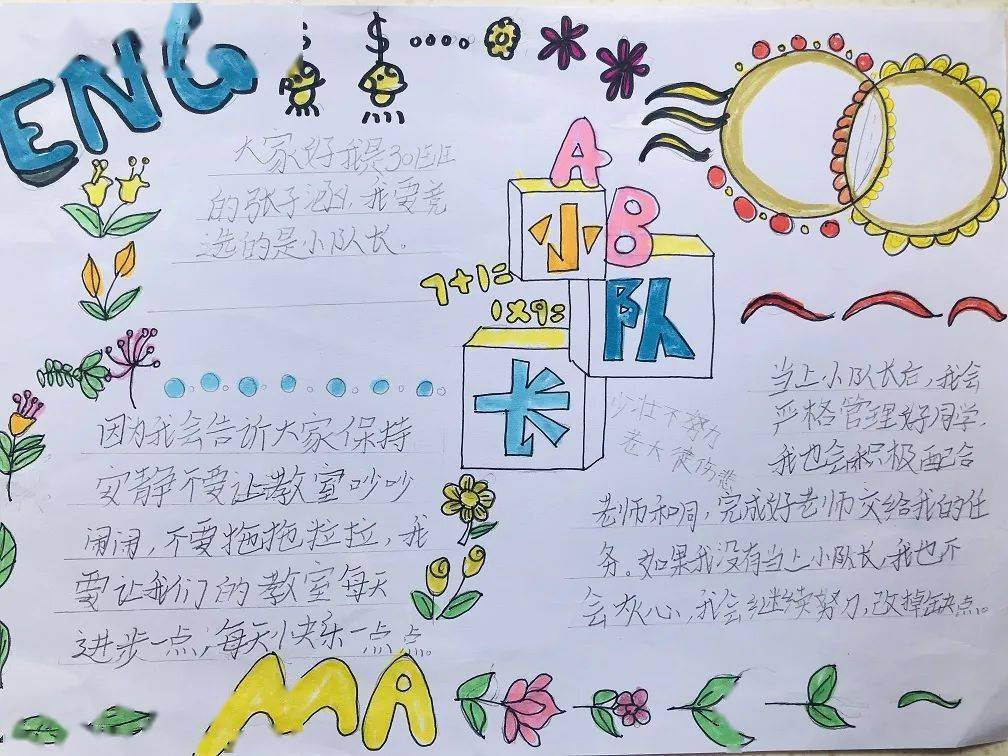 ENG
大家好我是30班
的张子涵,我要竞
选的是小队长。
A
B
小
队
长
7+1=
1×9=
少壮不努力
老大徒伤悲
因为我会告诉大家保持
安静不要让教室吵吵
闹闹,不要拖拖拉拉,我
要让我们的教室每天
进步一点,每天小快乐一点点。
当上小队长后,我会
严格管理好同学,
我也会积极配合
老师和同,完成好老师交给我的任
务。如果我没有当上小队长,我也不
会灰心,我会继续努力,改掉缺点。
MA